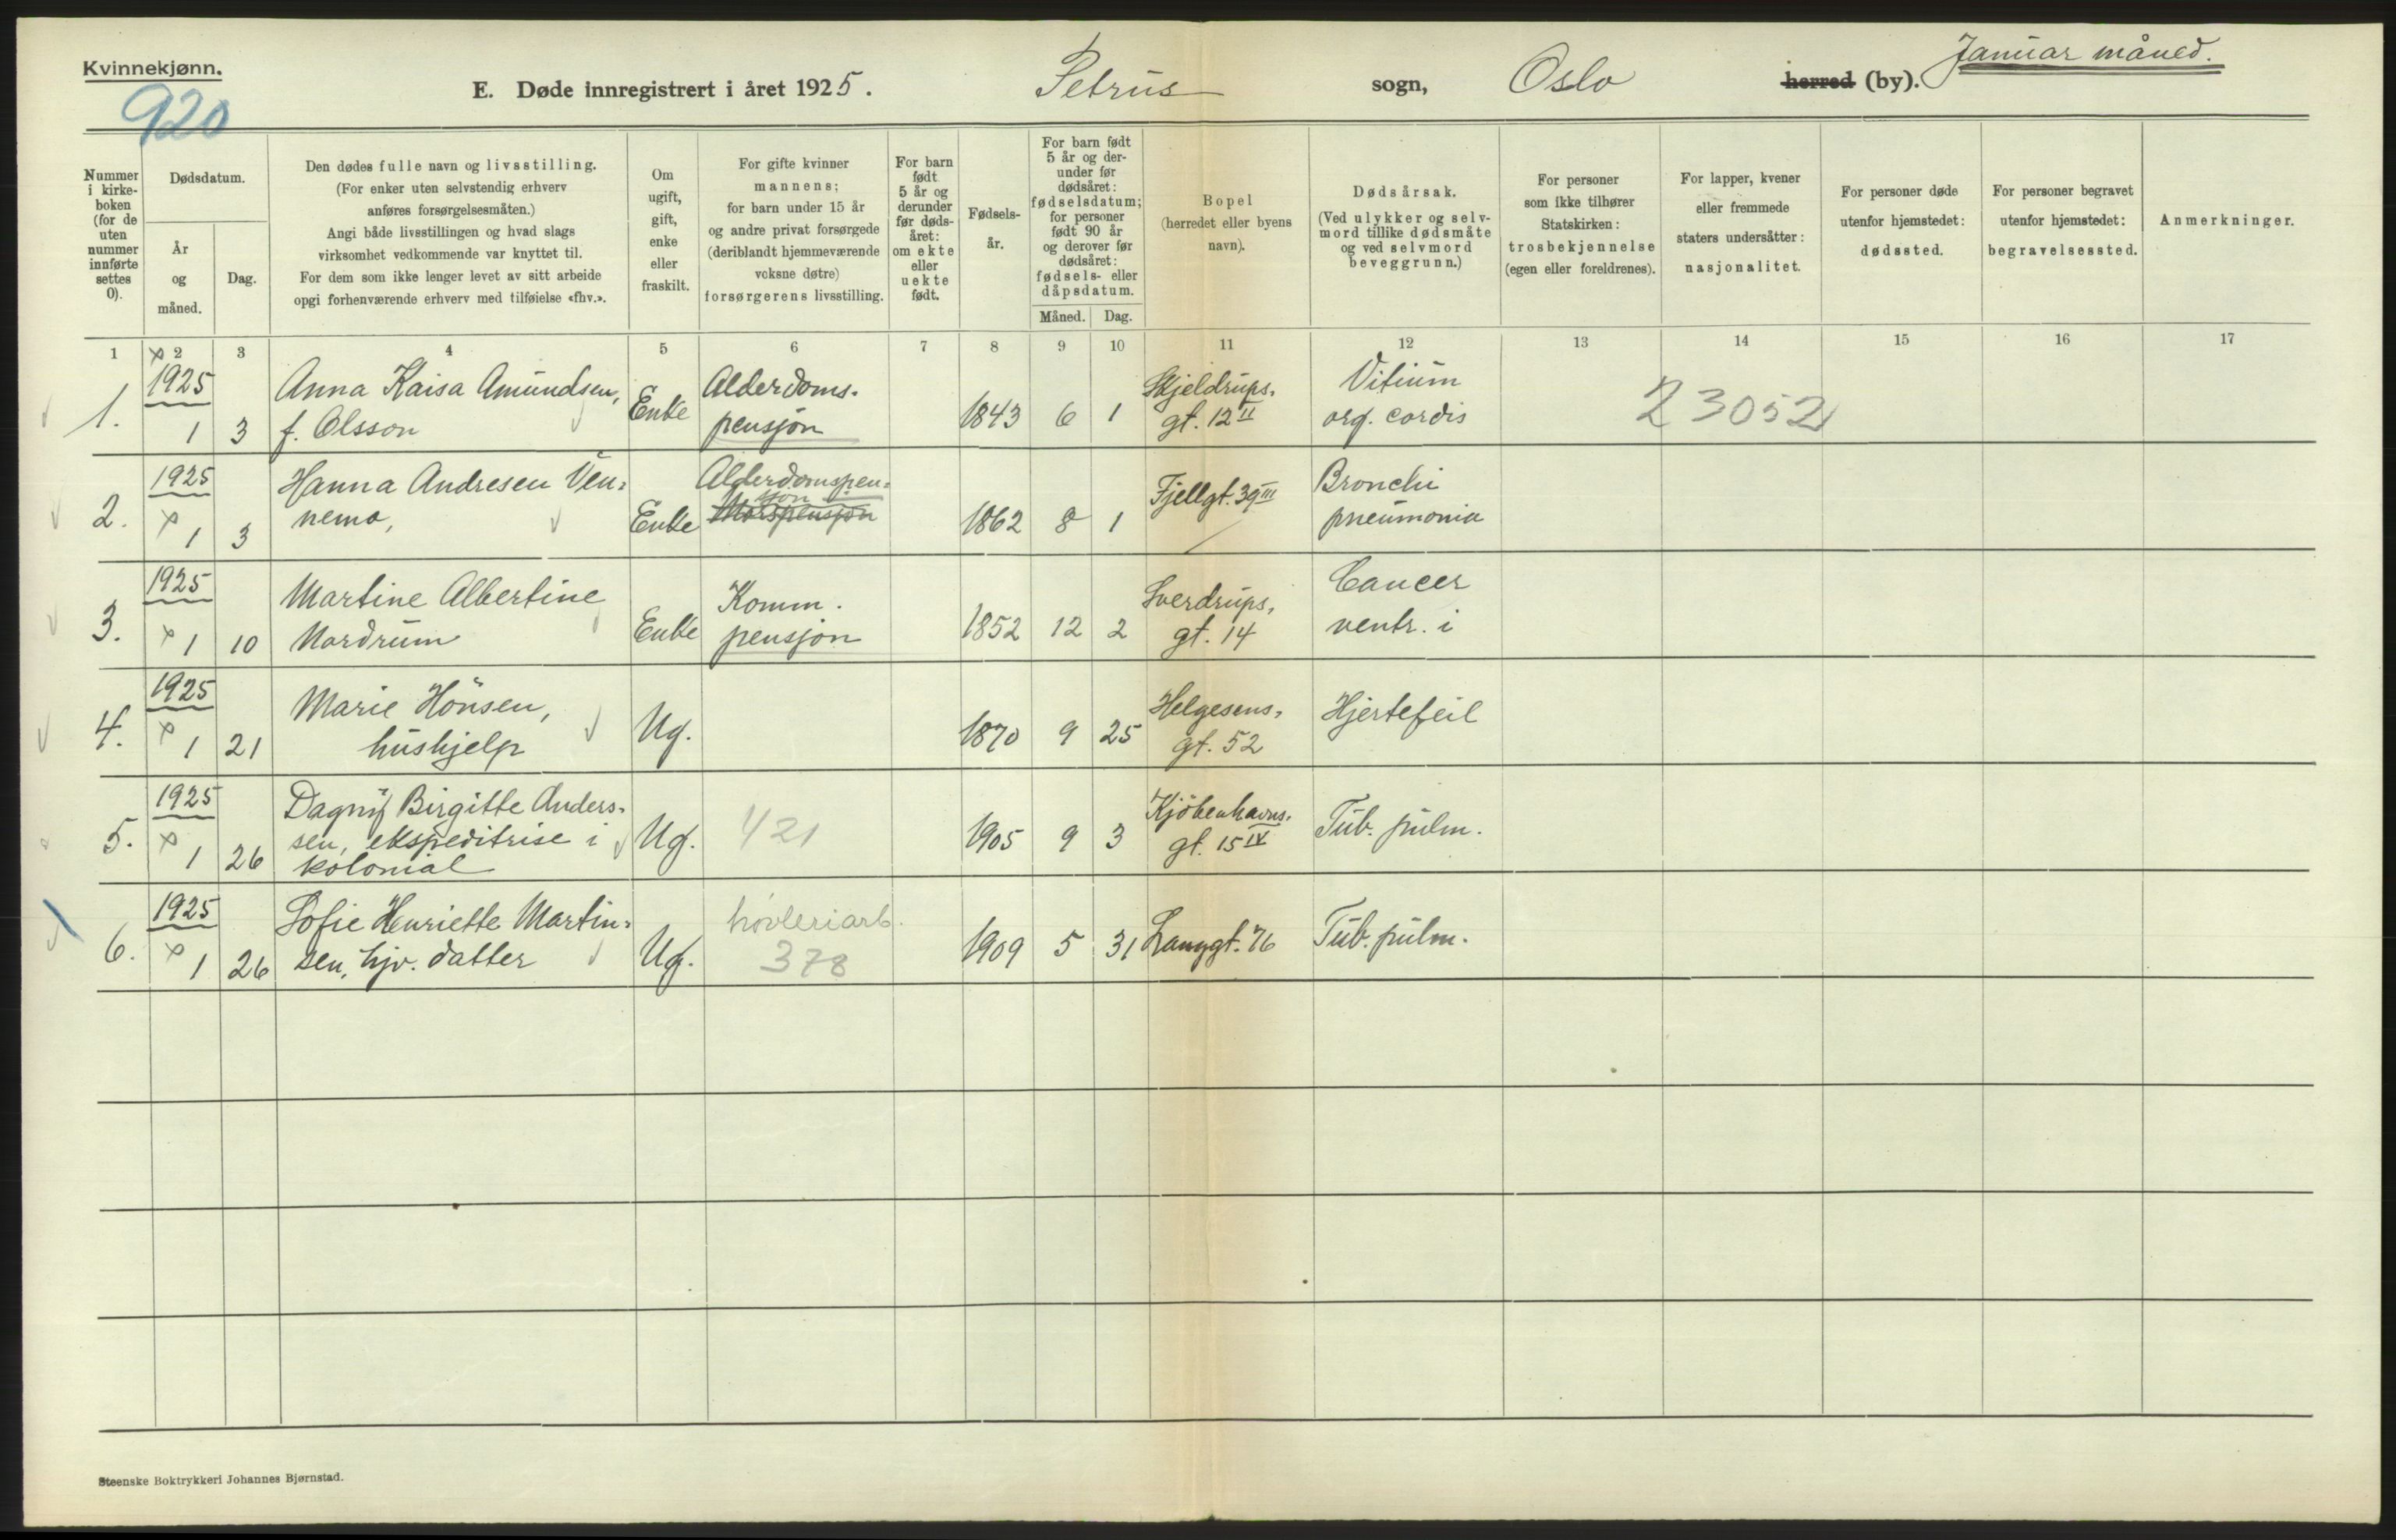 Kvinnekjønn.
920
E. Døde innregistrert i året 1925.
Petrus sogn, Oslo herred (by).
Januar måned.
Nummer i kirkeboken (for de uten nummer innførte settes 0).
Dødsdatum.
År og måned.
Dag.
Den dødes fulle navn og livsstilling.
(For enker uten selvstendig erhverv
anføres forsørgelsesmåten.)
Angi både livsstillingen og hvad slags
virksomhet vedkommende var knyttet til.
For dem som ikke lenger levet av sitt arbeide
opgi forhenværende erhverv med tilføielse «fhv.».
Om
ugift,
gift,
enke
eller
fraskilt.
For gifte kvinner
mannens;
for barn under 15 år
og andre privat forsørgede
(deriblandt hjemmeværende
voksne døtre)
forsørgerens livsstilling.
For barn
født
5 år og
derunder
før døds-
året:
om ekte
eller
uekte
født.
Fødsels-
år.
For barn født
5 år og der-
under før
dødsåret:
fødselsdatum;
for personer
født 90 år
og derover før
dødsåret:
fødsels- eller
dåpsdatum.
Måned. Dag.
Bopel
(herredet eller byens
navn).
Dødsårsak.
(Ved ulykker og selv-
mord tillike dødsmåte
og ved selvmord
beveggrunn.)
For personer
som ikke tilhører
Statskirken:
trosbekjennelse
(egen eller foreldrenes).
For lapper, kvener
eller fremmede
staters undersåtter:
nasjonalitet.
For personer døde
utenfor hjemstedet:
dødssted.
For personer begravet
utenfor hjemstedet:
begravelsessted.
Anmerkninger.
1 2 3 4 5 6 7 8 9 10 11 12 13 14 15 16 17
1. 1925 1 3 Anna Kaisa Amundsen, f. Olsson Enke Alderdoms-pensjon 1843 6 1 Skjeldrups-gt. 12 II Vitium org. cordis 23052
2. 1925 1 3 Hanna Andresen Ven-nemo, Enke Alderdomspen-sjon Morspensjon 1862 8 1 Fjellgt. 39 III Bronchi pneumonia
3. 1925 1 10 Martine Albertine Nordrum Enke Komm. pensjon 1852 12 2 Sverdrups-gt. 14 Cancer ventr. i
4. 1925 1 21 Marie Hönsen, hushjelp Ug. 1870 9 25 Helgesens-gt. 52 Hjertefeil
5. 1925 1 26 Dagny Birgitte Anders-sen, ekspeditrise i kolonial Ug. 421 1905 9 3 Kjöbenhavns-gt. 15 IV Tub. pulm.
6. 1925 1 26 Sofie Henriette Martin-sen, hjv. datter Ug. høvleriarb. 378 1909 5 31 Langgt. 76 Tub. pulm.
Steenske Boktrykkeri Johannes Bjørnstad.